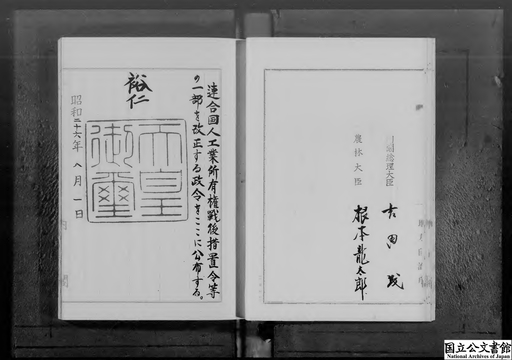 連合国人工業所有権戦後措置令等
の一部を改正する政令をここに公布する。
裕仁
天皇
御璽
昭和二十六年八月一日
内閣総理大臣 吉田茂
農林大臣 根本龍太郎
国立公文書館
National Archives of Japan